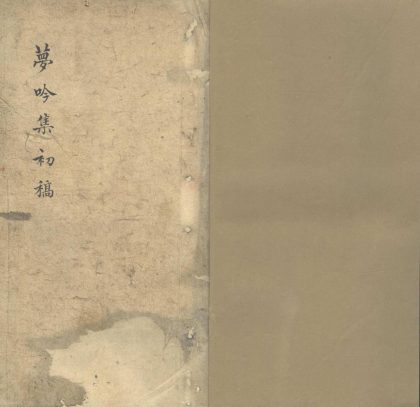 夢吟集初稿